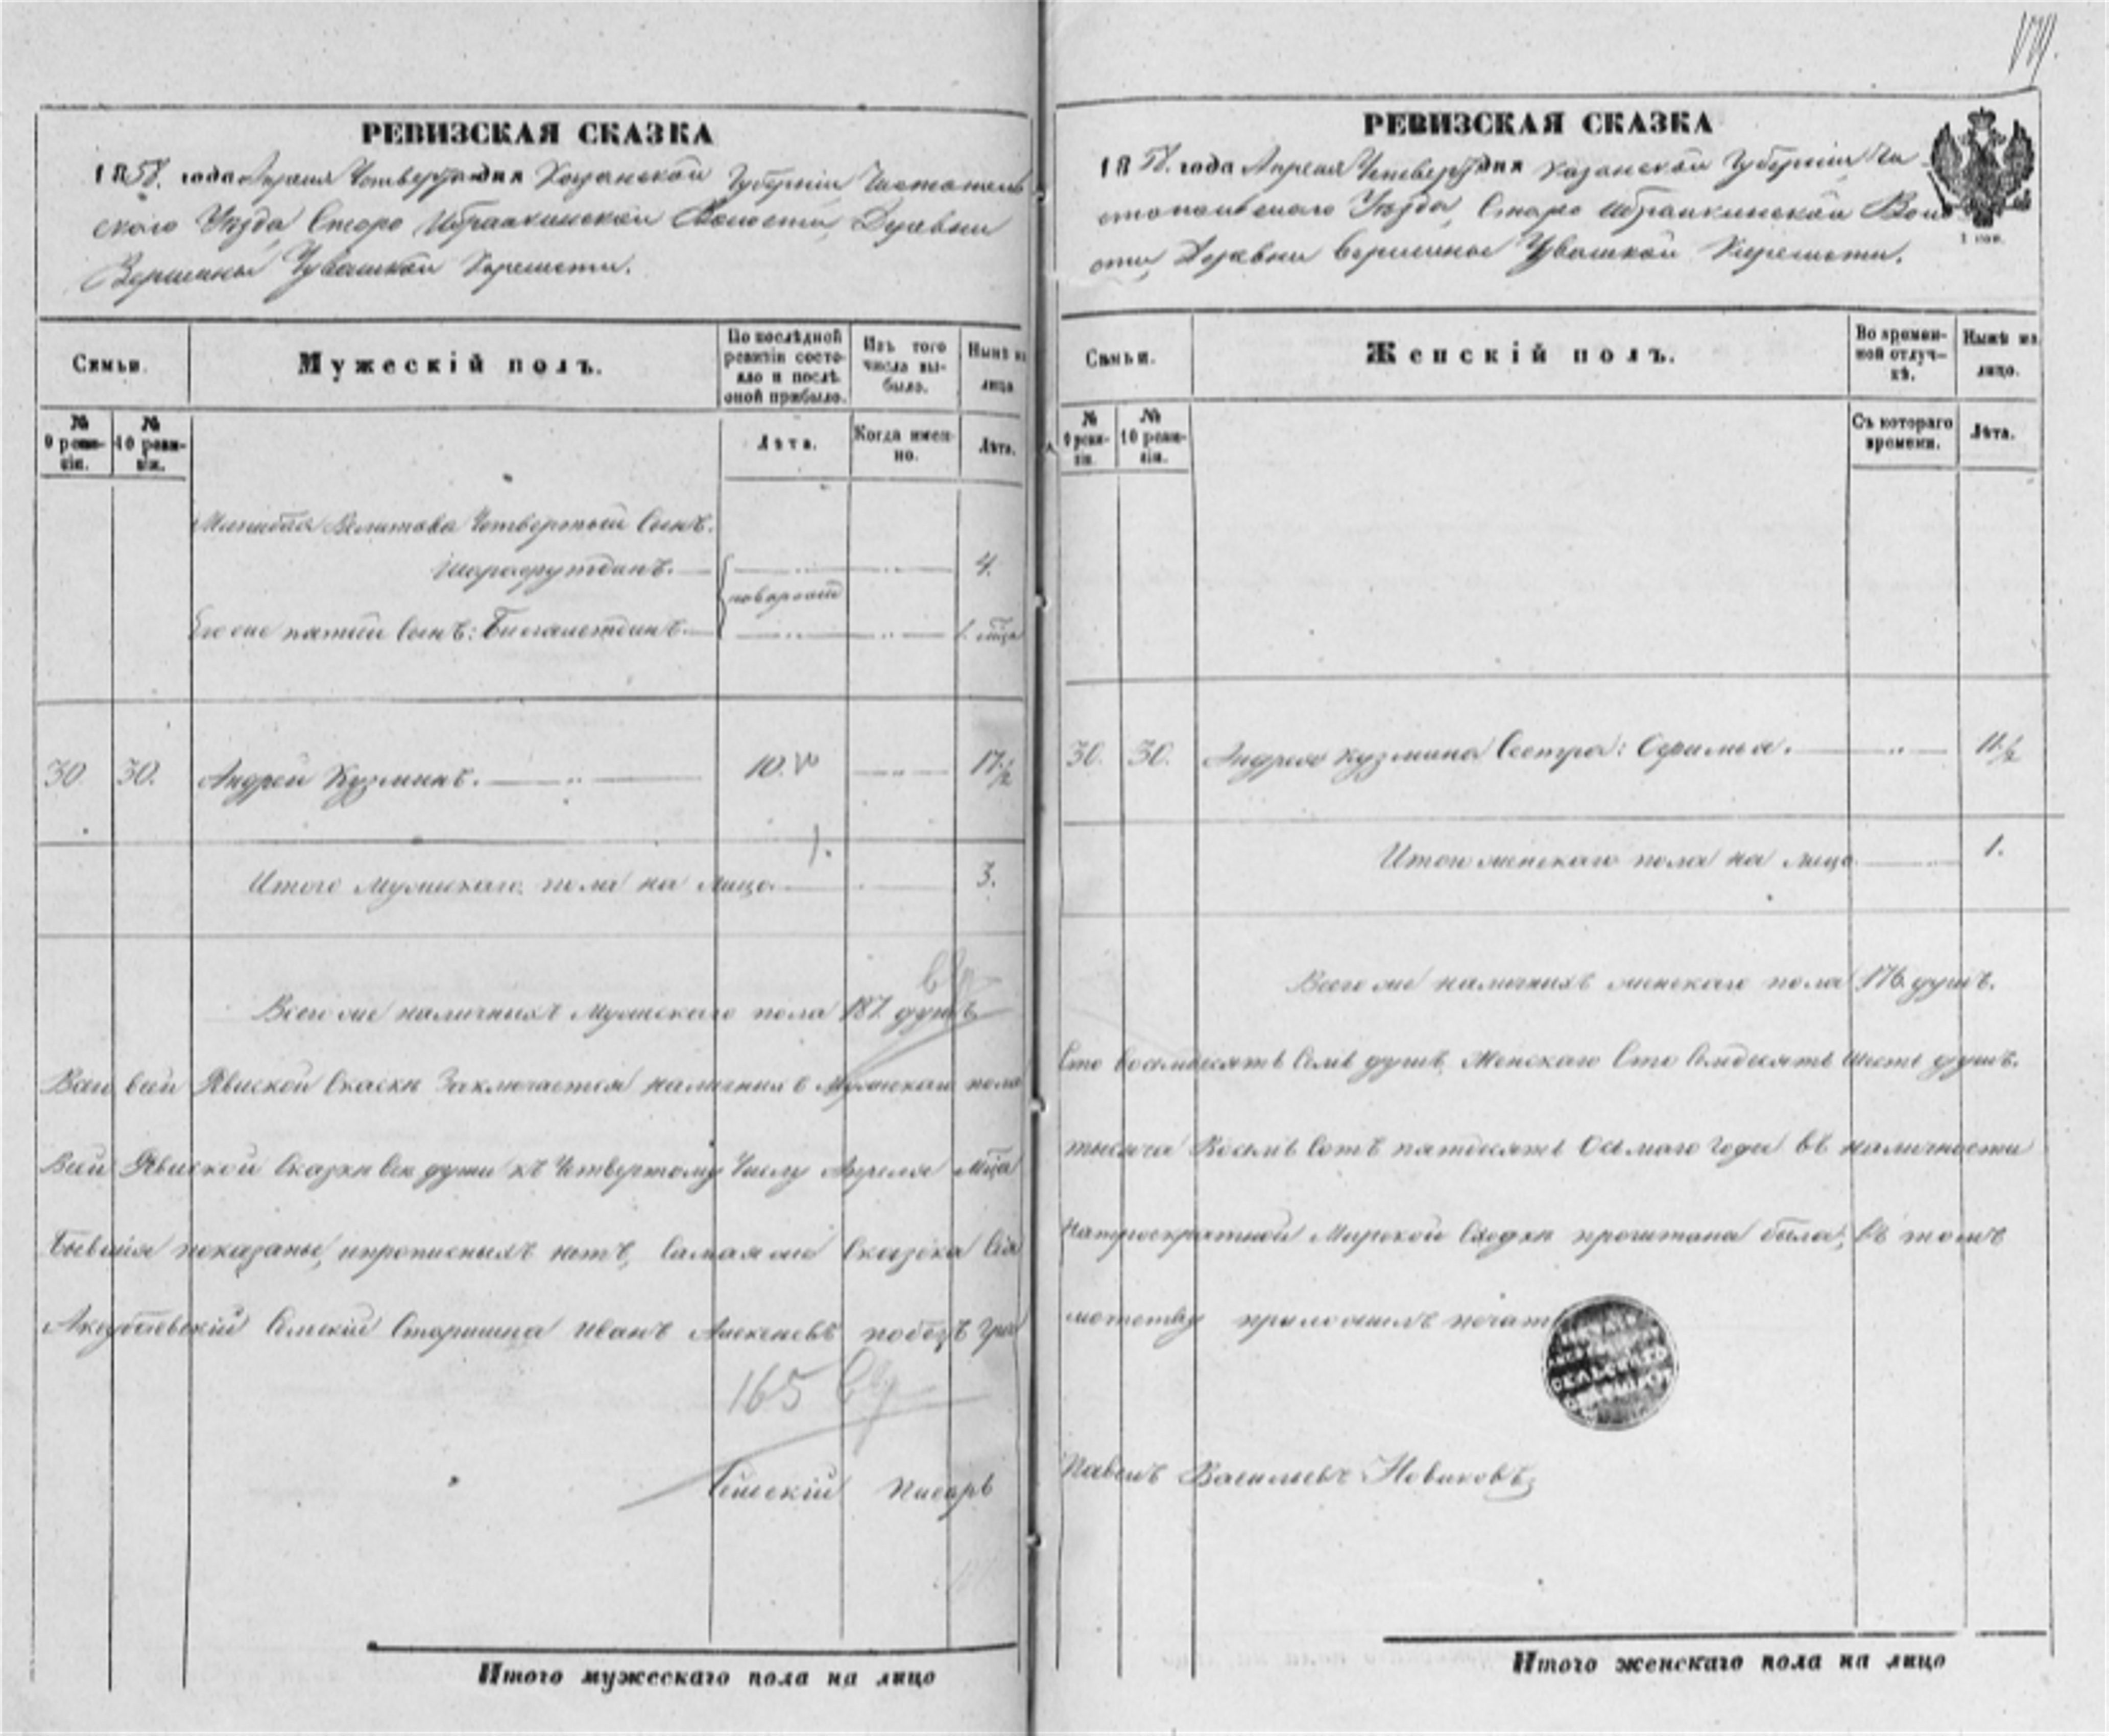 РЕВИЗСКАЯ СКАЗКА
1858. года Апреля Четвертаго дня Казанской Губерніи Чистополь
скаго Уѣзда Старо Ибрайкинской Волости, Деревни
Вершины Чувашкой Керемети.
Семьи.
Мужескій полъ.
По послѣдной
ревизіи состо-
яло и послѣ
оной прибыло.
Изъ того
числа вы-
было.
Нынѣ на
лицо
№
9 реви-
зіи.
№
10 реви-
зіи.
Лѣта.
Когда имен-
но.
Лѣта.
Четвертый Сынъ.
Шарафутдинъ. 4.
новорожд
Его же пятый Сынъ: 1. мца
30. 30. Андрей Кузминъ. 10. 17 1/2
1.
Итого Мужскаго пола на лицо. 3.
Всего же наличныхъ Мужскаго пола 187. душъ
Всего всей Рвиской Скаски Заключается наличныхъ Мужскаго пола
Всей Рвиской Сказки все души къ Четвертому Числу Апреля Мца
бывшія показаны, и прописныхъ нетъ, Самая же Сказска Сія
Сельскій Старшина Иванъ Алексѣевъ по безъ гра
165
Сельскій Писарь
Итого мужескаго пола на лицо
РЕВИЗСКАЯ СКАЗКА
1858. года Апреля Четвертаго дня Казанской Губерніи Чи
стопольскаго Уѣзда, Старо Ибрайкинской Воло
сти, Деревни Вершины Чувашкой Керемети.
Семьи.
Женскій полъ.
Во времен-
ной отлуч-
кѣ.
Нынѣ на
лицо.
№
9 реви-
зіи.
№
10 реви-
зіи.
Съ котораго
времени.
Лѣта.
30. 30. Андрея Кузмина Сестра: 11 1/2
Итого женскаго пола на лицо 1.
Всего же наличныхъ женскаго пола 176. душъ.
Сто Восемьдесятъ Семь душъ, Женскаго Сто Семдесятъ Шесть душъ.
тысяча Восемь Сотъ пятдесятъ Осьмаго Года въ наличности
На троекратной Мирской Сходки прочитана была, въ томъ
мотству приложилъ печать
СЕЛЬСКАГО
Павелъ Васильевъ Новиковъ
Итого женскаго пола на лицо